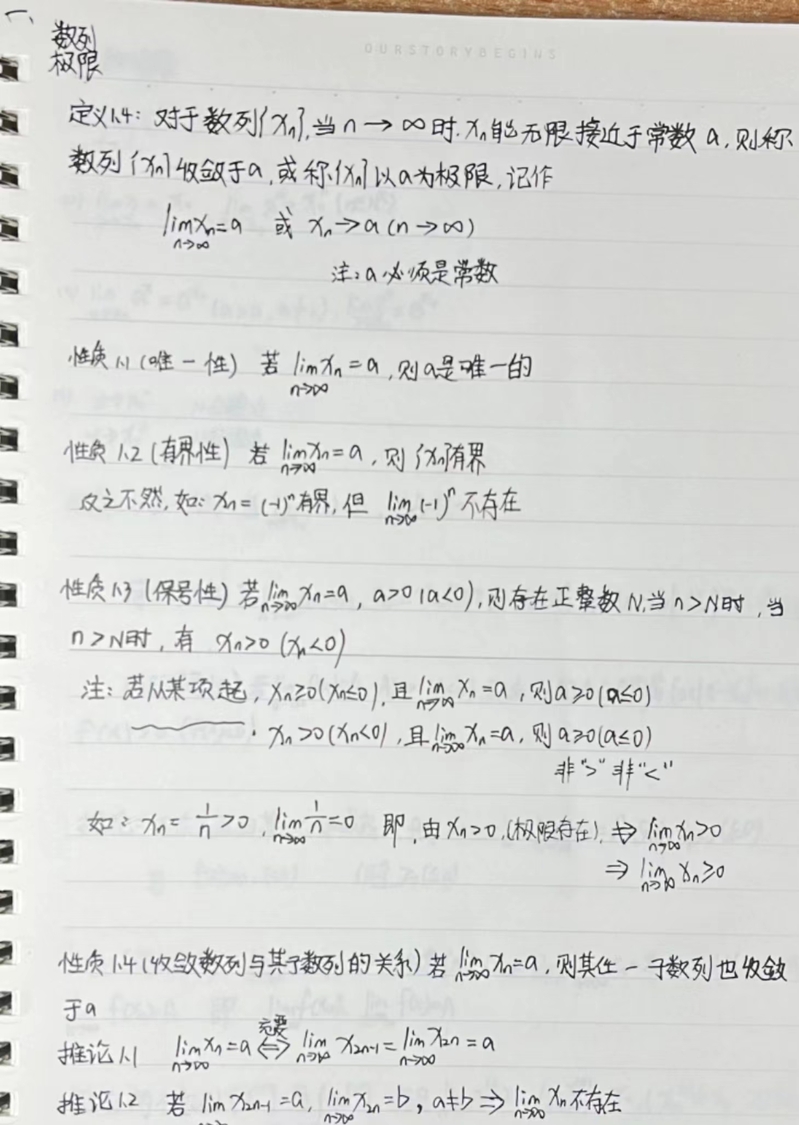 一
数列
极限
OURSTORYBEGINS
定义1.4: 对于数列{xₙ},当 n → ∞ 时.xₙ能无限接近于常数 a,则称
数列{xₙ}收敛于a,或称{xₙ}以a为极限,记作
lim_{n→∞} xₙ=a 或 xₙ→a (n→∞)
注:a必须是常数
性质1.1(唯一性) 若 lim_{n→∞} xₙ=a,则a是唯一的
性质1.2(有界性) 若 lim_{n→∞} xₙ=a,则{xₙ}有界
反之不然,如: xₙ=(-1)ⁿ有界,但 lim_{n→∞} (-1)ⁿ 不存在
性质1.3(保号性) 若 lim_{n→∞} xₙ=a, a>0(a<0),则存在正整数N,当 n>N时,当
n>N时,有 xₙ>0 (xₙ<0)
注: 若从某项起, xₙ≥0(xₙ≤0),且 lim_{n→∞} xₙ=a,则a≥0(a≤0)
xₙ>0(xₙ<0),且 lim_{n→∞} xₙ=a,则 a≥0(a≤0)
非“>”非“<”
如: xₙ= 1/n >0, lim_{n→∞} 1/n =0 即,由xₙ>0,(极限存在), ⇏ lim_{n→∞} xₙ>0
⇒ lim_{n→∞} xₙ≥0
性质1.4(收敛数列与其子数列的关系) 若 lim_{n→∞} xₙ=a,则其任一子数列也收敛
于a
推论1.1 lim_{n→∞} xₙ=a ⇔(充要) lim_{n→∞} x₂ₙ₋₁= lim_{n→∞} x₂ₙ=a
推论1.2 若 lim x₂ₙ₋₁=a, lim_{n→∞} x₂ₙ=b, a≠b ⇒ lim_{n→∞} xₙ不存在